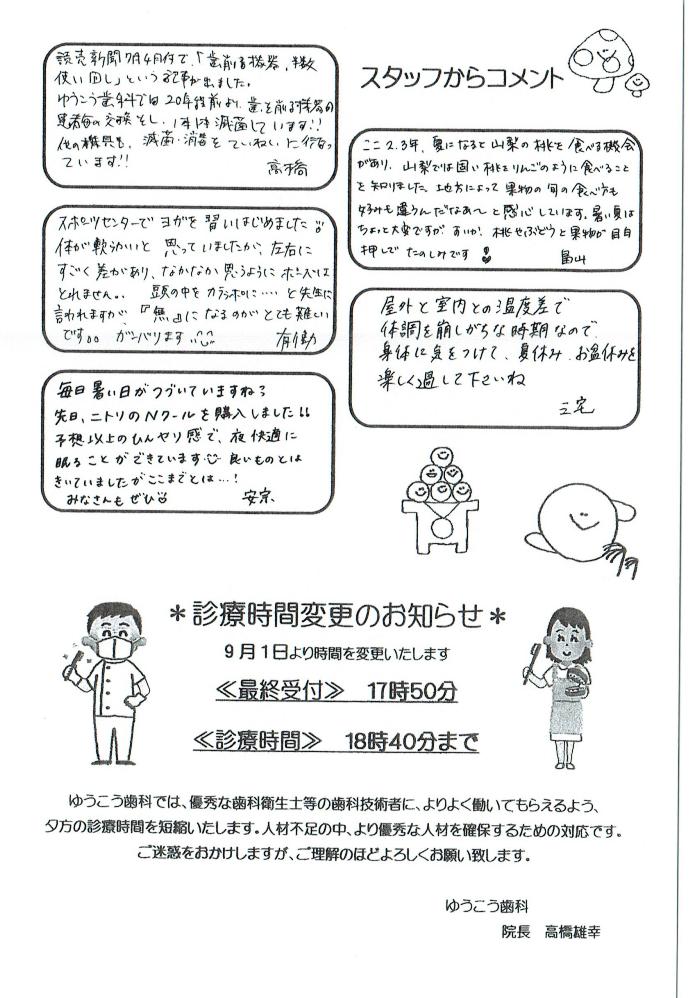 スタッフからコメント
読売新聞7月4日付で、「歯削る機器、半数
使い回し」という記事が出ました。
ゆうこう歯科では20年程前より、歯を削る機器の
患者毎の交換をし、1本1本滅菌しています!!
他の機具も、滅菌・消毒をていねいに行なっ
ています!!
高橋
ここ2.3年、夏になると山梨の桃を食べる機会
があり、山梨では固い桃をりんごのように食べること
を知りました。土地方によって果物の旬の食べ方も
好みも違うんだなあ〜と感心しています。暑い夏は
ちょっと大変ですが すいか、桃やぶどうと果物が目白
押しで たのしみです
畠山
スポーツセンターでヨガを習いはじめました
体が軟らかいと思っていましたが、左右に
すごく差があり、なかなか思うようにポーズは
とれません。 頭の中をカラッポに‥‥と先生に
言われますが、『無』になるのがとても難しい
です。。 ガンバリます
有働
屋外と室内との温度差で
体調を崩しがちな時期なので、
身体に気をつけて、夏休み、お盆休みを
楽しく過して下さいね
三宅
毎日暑い日がつづいていますね?
先日、ニトリのNクールを購入しました!!
予想以上のひんやり感で、夜快適に
眠ることができています 良いものとは
きいていましたがここまでとは…!
みなさんもぜひ
安宗
＊診療時間変更のお知らせ＊
9月1日より時間を変更いたします
≪最終受付≫ 17時50分
≪診療時間≫ 18時40分まで
ゆうこう歯科では、優秀な歯科衛生士等の歯科技術者に、よりよく働いてもらえるよう、
夕方の診療時間を短縮いたします。人材不足の中、より優秀な人材を確保するための対応です。
ご迷惑をおかけしますが、ご理解のほどよろしくお願い致します。
ゆうこう歯科
院長 高橋雄幸